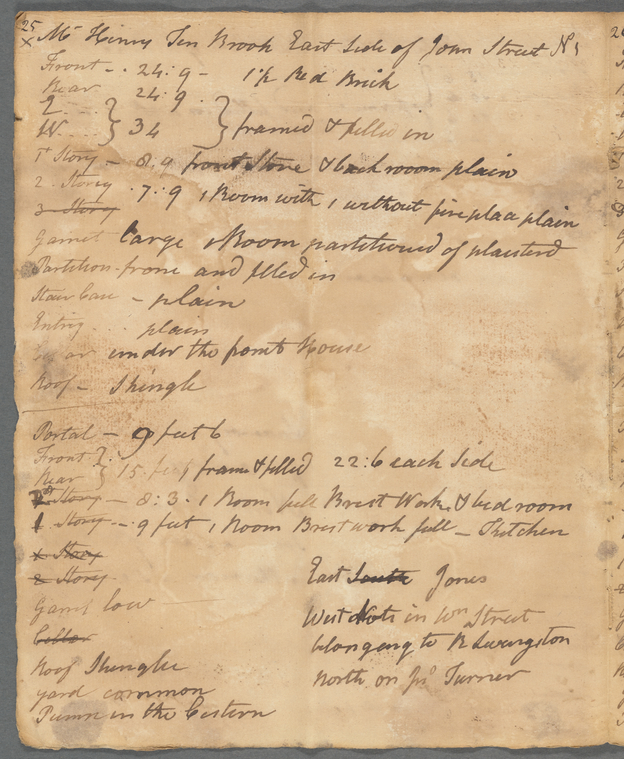 25
x Mr Henry Ten Brook East Side of John Street No
Front - . 24 : 9 - 1/2 Red Brick
Rear 24 . 9
E } 34 } framed & filled in
W
1st Story - 8 : 9 front Store & back rooom plain
2 . Storey . 7 : 9 1 Room with 1 without fire plaa plain
3 Story
Garret large 1 Room partitioned of plasterd
Partition frame and filled in
Stair Case - plain
Entry . . plain
under the front House
Roof - Shingle
Portal - 9 feet 6
Front } 15 feet frame & filled 22 : 6 each Side
Rear
Story - 8 : 3 . 1 Room full Brest Work & bed room
1 Story - . 9 feet 1 Room Brest work full - Kitchen
x Story
2 Story
East South Jones
Garret low
West Lots in Wm Street
Celler
belonging to R Livingston
Roof Shingle
North on Jno Turner
yard common
Pump in the Cestern